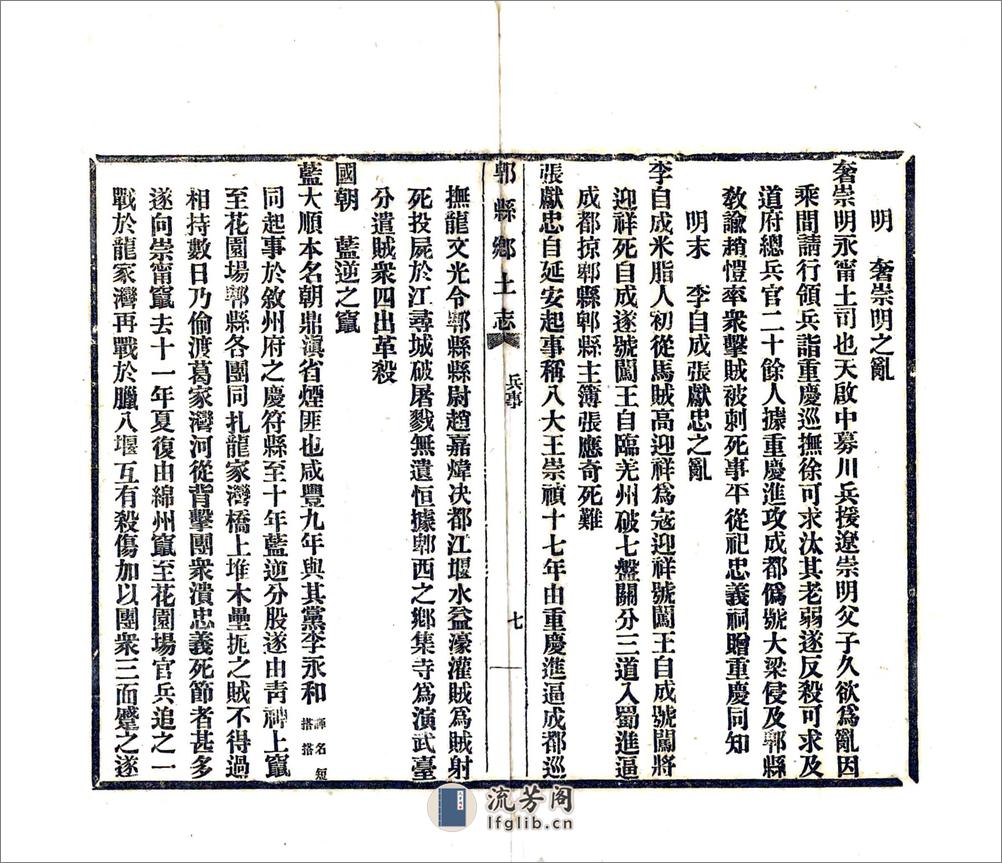 明　奢崇明之亂
奢崇明永甯土司也天啟中募川兵援遼崇明父子久欲爲亂因
乘間請行領兵詣重慶巡撫徐可求汰其老弱遂反殺可求及
道府總兵官二十餘人據重慶進攻成都僞號大梁侵及郫縣
教諭趙愷率衆擊賊被刺死事平從祀忠義祠贈重慶同知
明末　李自成張獻忠之亂
李自成米脂人初從馬賊高迎祥爲寇迎祥號闖王自成號闖將
迎祥死自成遂號闖王自臨羌州破七盤關分三道入蜀進逼
成都掠郫縣郫縣主簿張應奇死難
張獻忠自延安起事稱八大王崇禎十七年由重慶進逼成都巡
郫縣鄉土志　兵事　七
撫龍文光令郫縣縣尉趙嘉煒决都江堰水益濠灌賊爲賊射
死投屍於江尋城破屠戮無遺恒據郫西之鄉集寺爲演武臺
分遣賊衆四出革殺
國朝　藍逆之竄
藍大順本名朝鼎滇省煙匪也咸豐九年與其黨李永和譯名短搭搭
同起事於敘州府之慶符縣至十年藍逆分股遂由靑神上竄
至花園場郫縣各團同扎龍家灣橋上堆木壘扼之賊不得過
相持數日乃偷渡葛家灣河從背擊團衆潰忠義死節者甚多
遂向崇甯竄去十一年夏復由綿州竄至花園場官兵追之一
戰於龍家灣再戰於臘八堰互有殺傷加以團衆三面蹙之遂
流芳阁
lfglib.cn